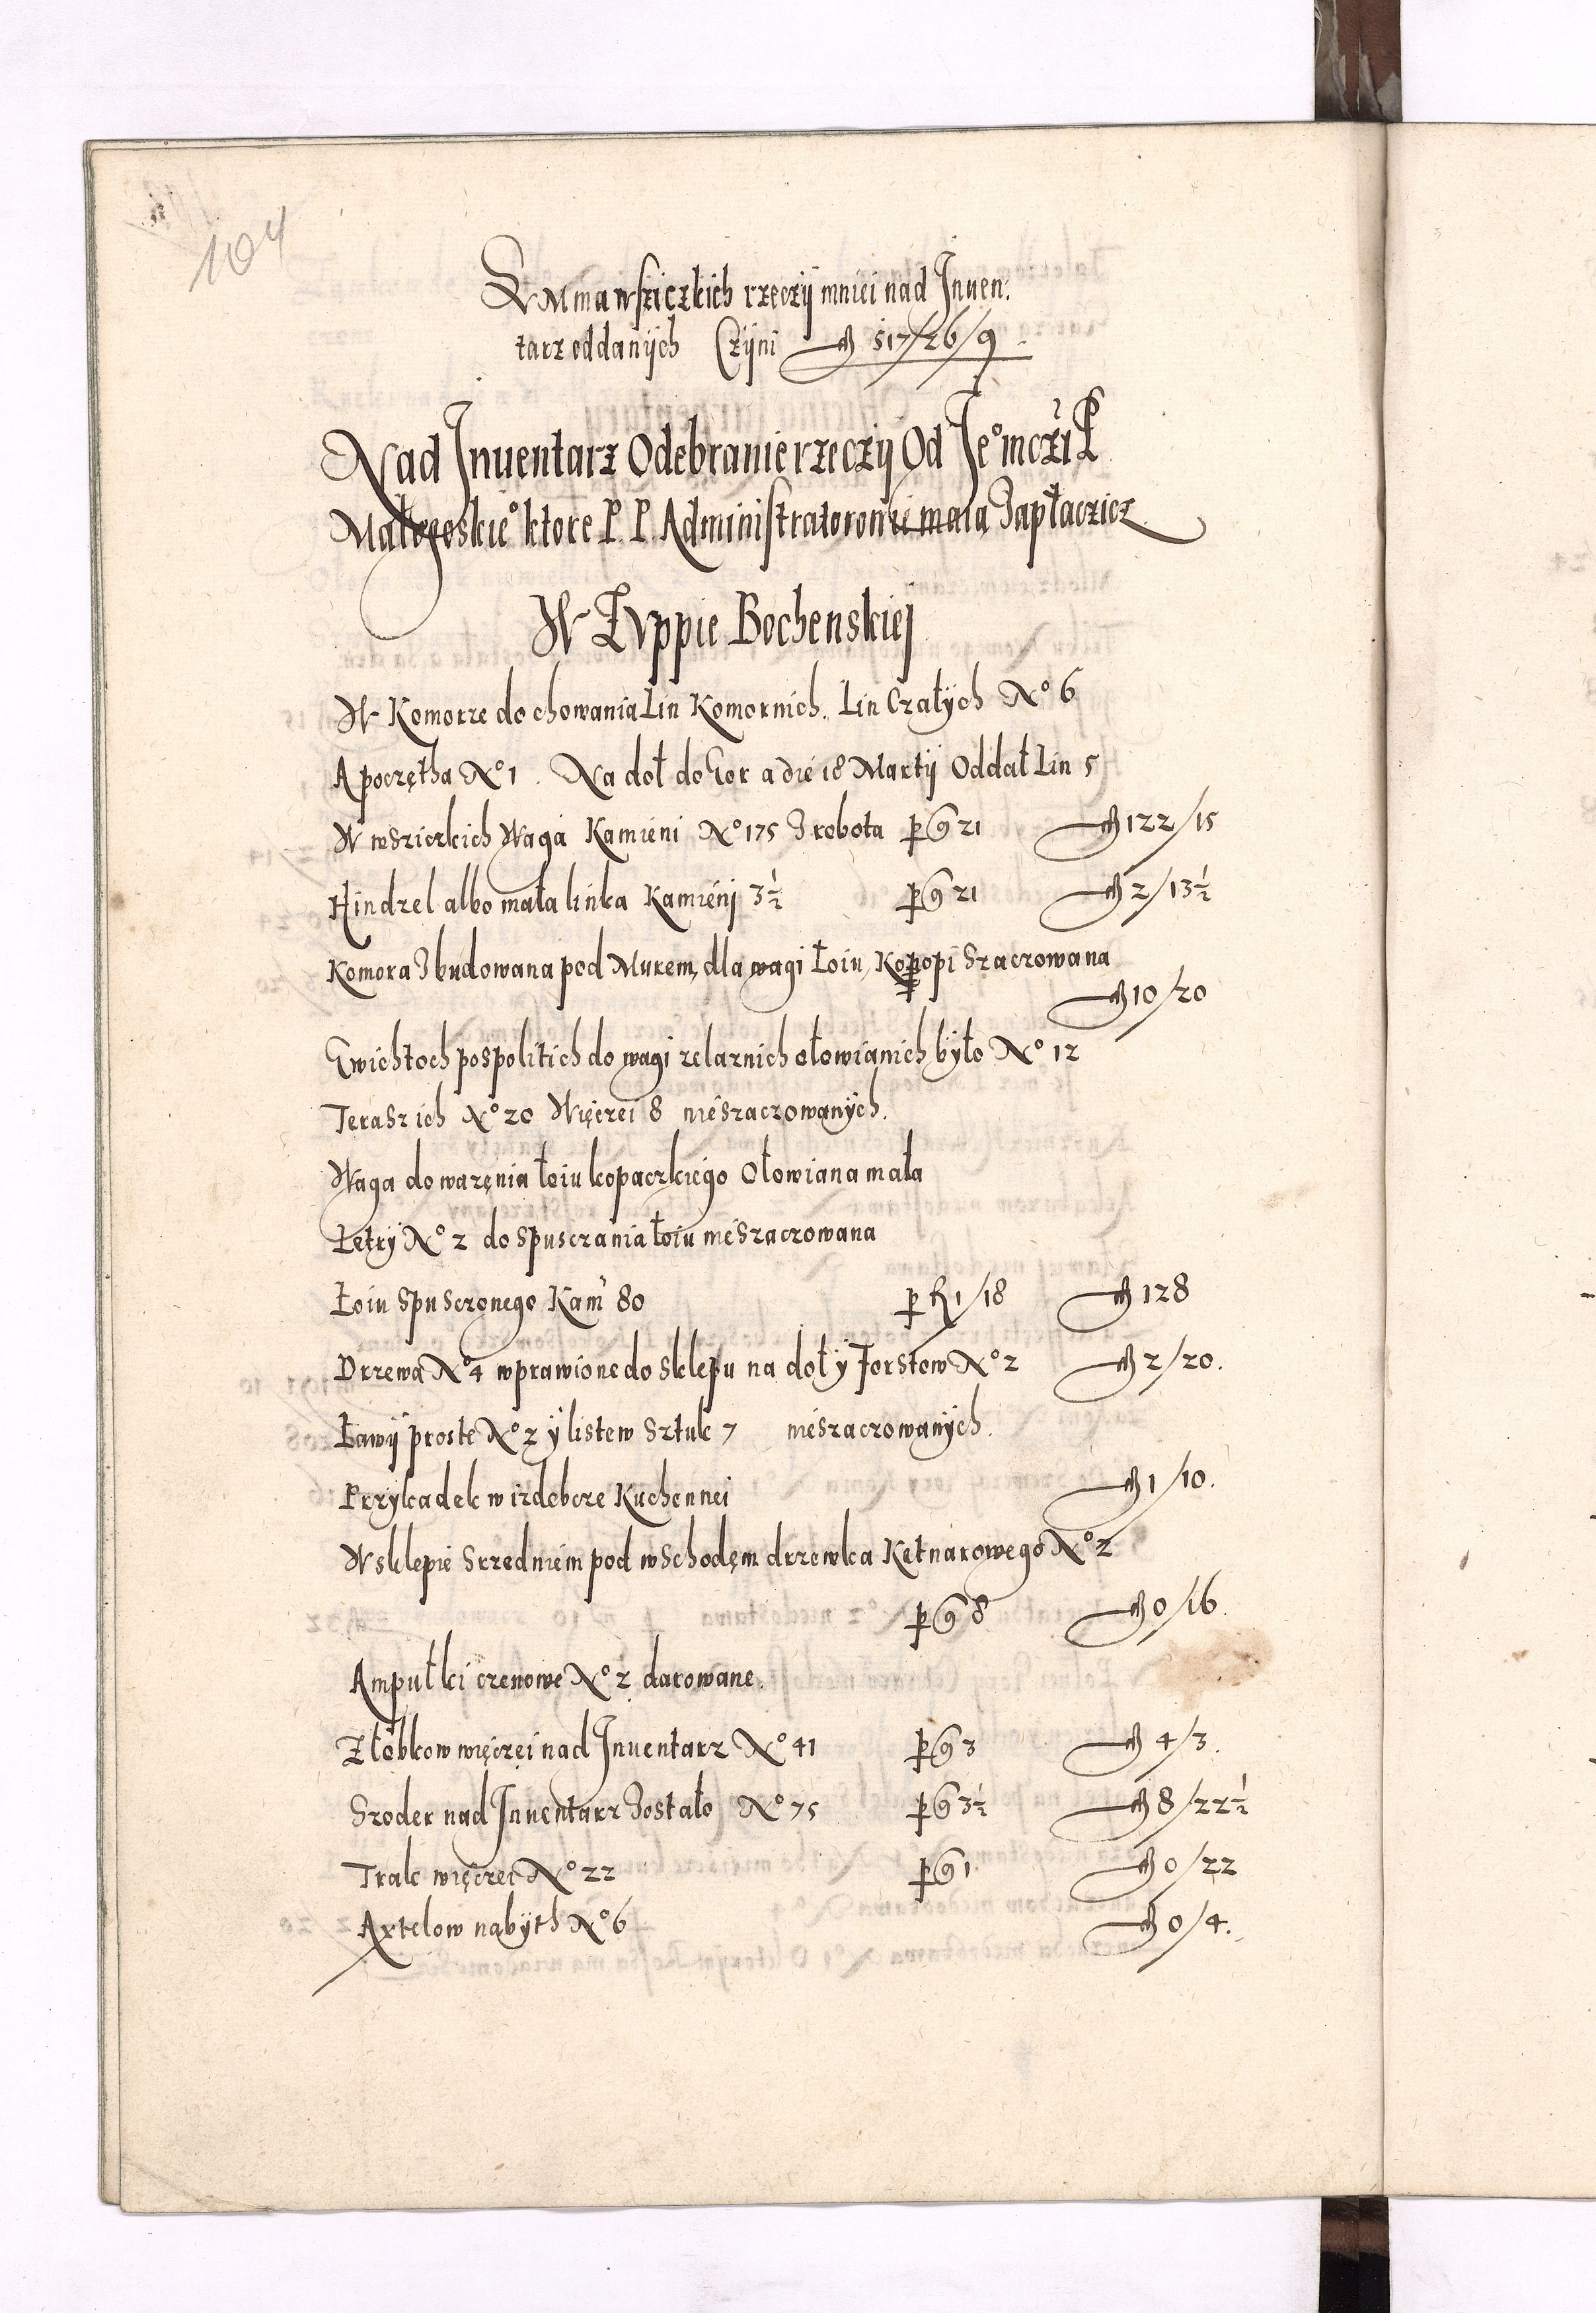 104
Summa wsziczkich rzeczÿ mniei nad Inuen:
tarz oddanÿch Czÿni 517/26/9
Nad Inuentarz Odebranie rzeczÿ Od Je° mczi P
Małogoskie° ktore P. P. Administratorowie maią Zapłaczicz
W Zuppie Bochenskiej
W Komorze do chowania Lin Komornich. Lin Czałÿch N° 6
A poczętha N° 1. Na doł do Gor a die 18 Martÿ Oddał Lin 5
W wszirkich Waga Kamieni N° 175 Z robota p g 21 122/15
Hindzel albo mała linka Kamienj 3½ p g 21 2/13½
Komora Zbudowana pod Murem, dla wagi Łoiu, Kopopi Szaczowana
10/20
Gwichtoch pospolitich do wagi zelaznich ołowianich było N° 12
Terasz ich N° 20 Więczei 8 nieszaczowanÿch.
Waga do wazęnia łoiu kopaczkiego Ołowiana mała
Łetry N° 2 do Spusczania łoiu nieszaczowana
Łoiu Spusczonego Kam 80 p fl 1/18 128
Drzewa N° 4 wprawione do Sklepu na doł y Forstow N° 2 2/20.
Ławÿ proste N° 2 ÿ listew Sztuk 7 nieszaczowanÿch.
Przykadek w izdebcze Kuchennei 1/10.
W sklepie Srzedniem pod wschodęm drzewka Kętnarowego N° 2
p g 8 0/16.
Ampułki czenowe N° 2 darowane.
Złobkow więczei nad Inuentarz N° 41 p g 3 4/3.
Szoder nad Inuentarz Zostało N° 75 p g 3½ 8/22½
Trak więczei N° 22 p g 1 0/22
Axtelow nabÿth N° 6 0/4.